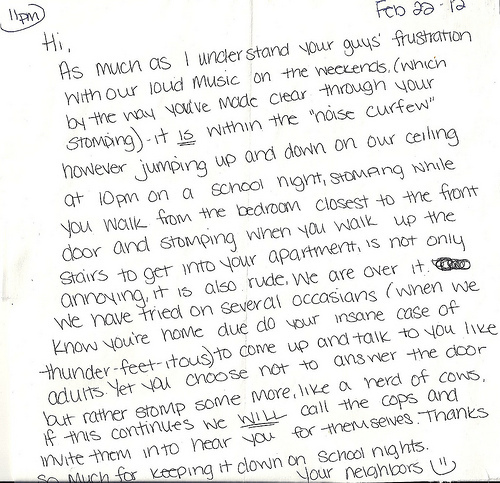 11pm
Feb 22 - 12
Hi,
As much as I understand your guys' frustration
with our loud music on the weekends, (which
by the way you've made clear through your
stomping) - it is within the "noise curfew"
however jumping up and down on our ceiling
at 10pm on a school night, stomping while
you walk from the bedroom closest to the front
door and stomping when you walk up the
stairs to get into your apartment, is not only
annoying, it is also rude. We are over it.
We have tried on several occasians (when we
know you're home due do your insane case of
thunder-feet-itous) to come up and talk to you like
adults. Yet you choose not to answer the door
but rather stomp some more, like a herd of cows.
If this continues we WILL call the cops and
invite them in to hear you for themselves. Thanks
so much for keeping it down on school nights.
Your neighbors